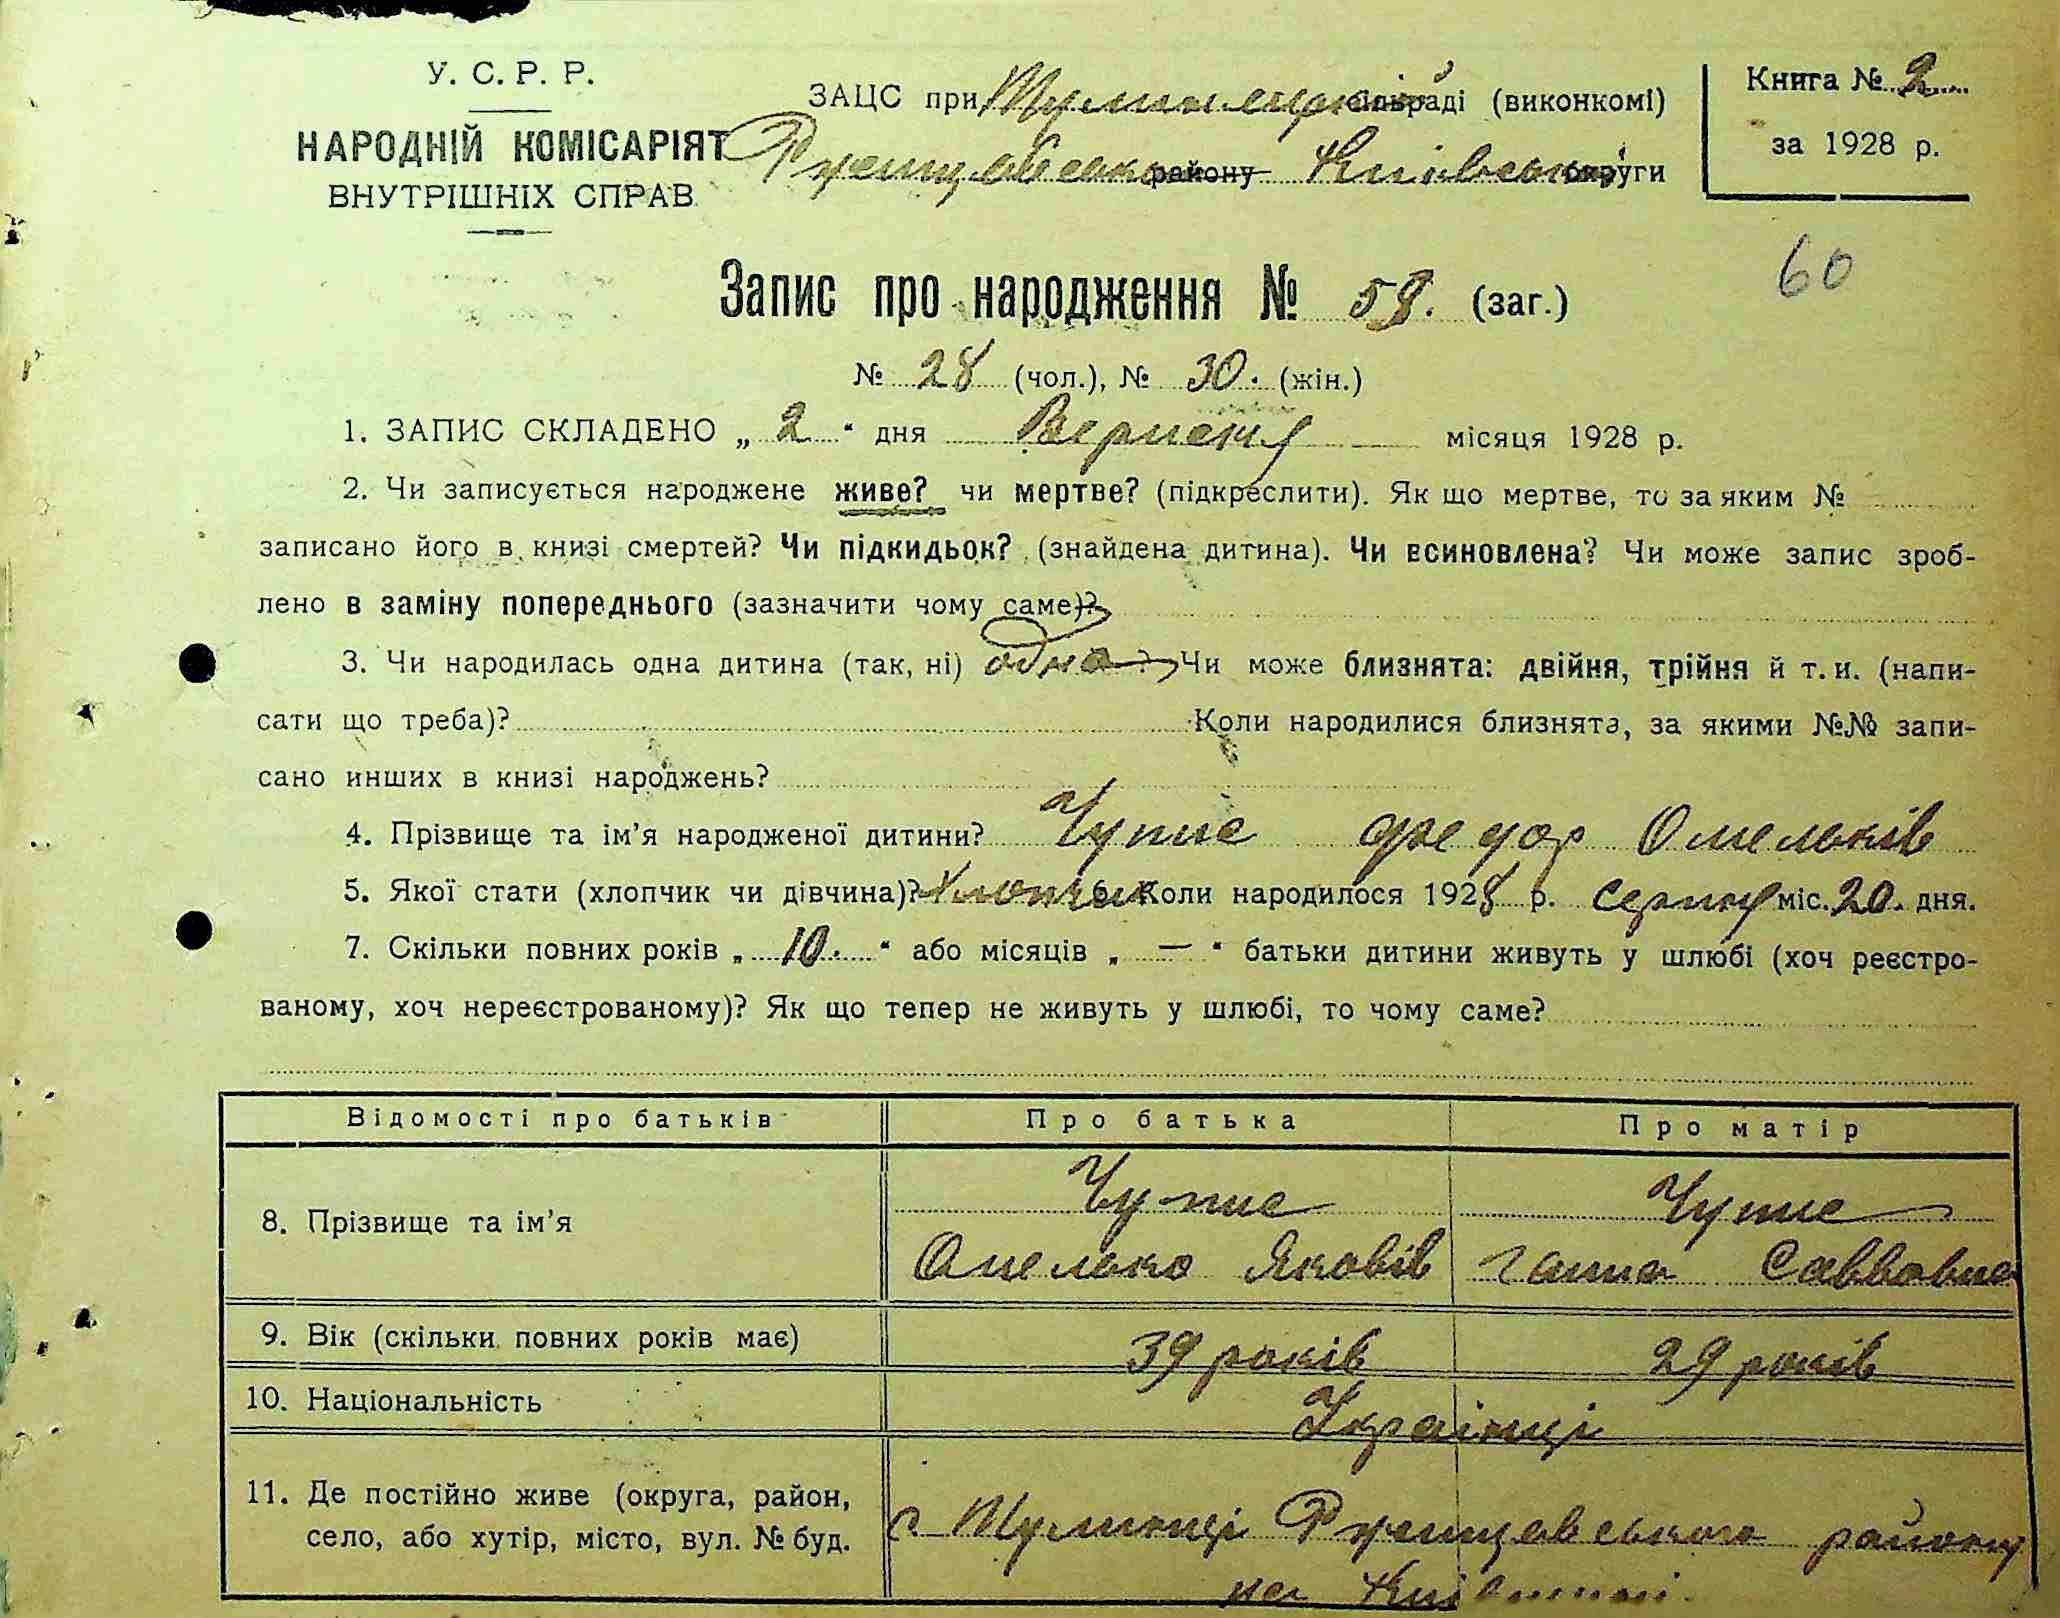 У. С. Р. Р.
НАРОДНІЙ КОМІСАРІЯТ
ВНУТРІШНІХ СПРАВ
ЗАЦС при сільраді (виконкомі)
району Київської округи
Книга № 2
за 1928 р.
60
Запис про народження № 58. (заг.)
№ 28 (чол.), № 30. (жін.)
1. ЗАПИС СКЛАДЕНО „ 2 “ дня Вересня місяця 1928 р.
2. Чи записується народжене живе? чи мертве? (підкреслити). Як що мертве, то за яким №
записано його в книзі смертей? Чи підкидьок? (знайдена дитина). Чи всиновлена? Чи може запис зроб-
лено в заміну попереднього (зазначити чому саме)?
3. Чи народилась одна дитина (так, ні) одна ? Чи може близнята: двійня, трійня й т. и. (напи-
сати що треба)? Коли народилися близнята, за якими №№ запи-
сано инших в книзі народжень?
4. Прізвище та ім’я народженої дитини? Чупис Федор Омельків
5. Якої стати (хлопчик чи дівчина)? Хлопчик 6. Коли народилося 1928 р. Серпня міс. 20. дня.
7. Скільки повних років „ 10. “ або місяців „ — “ батьки дитини живуть у шлюбі (хоч реєстро-
ваному, хоч нереєстрованому)? Як що тепер не живуть у шлюбі, то чому саме?
Відомості про батьків Про батька Про матір
8. Прізвище та ім’я Чупис Чупис
Омелько Яковів Ганна Саввовна
9. Вік (скільки повних років має) 39 років 29 років
10. Національність Українці
11. Де постійно живе (округа, район, с району
село, або хутір, місто, вул. № буд.
на Київщині.